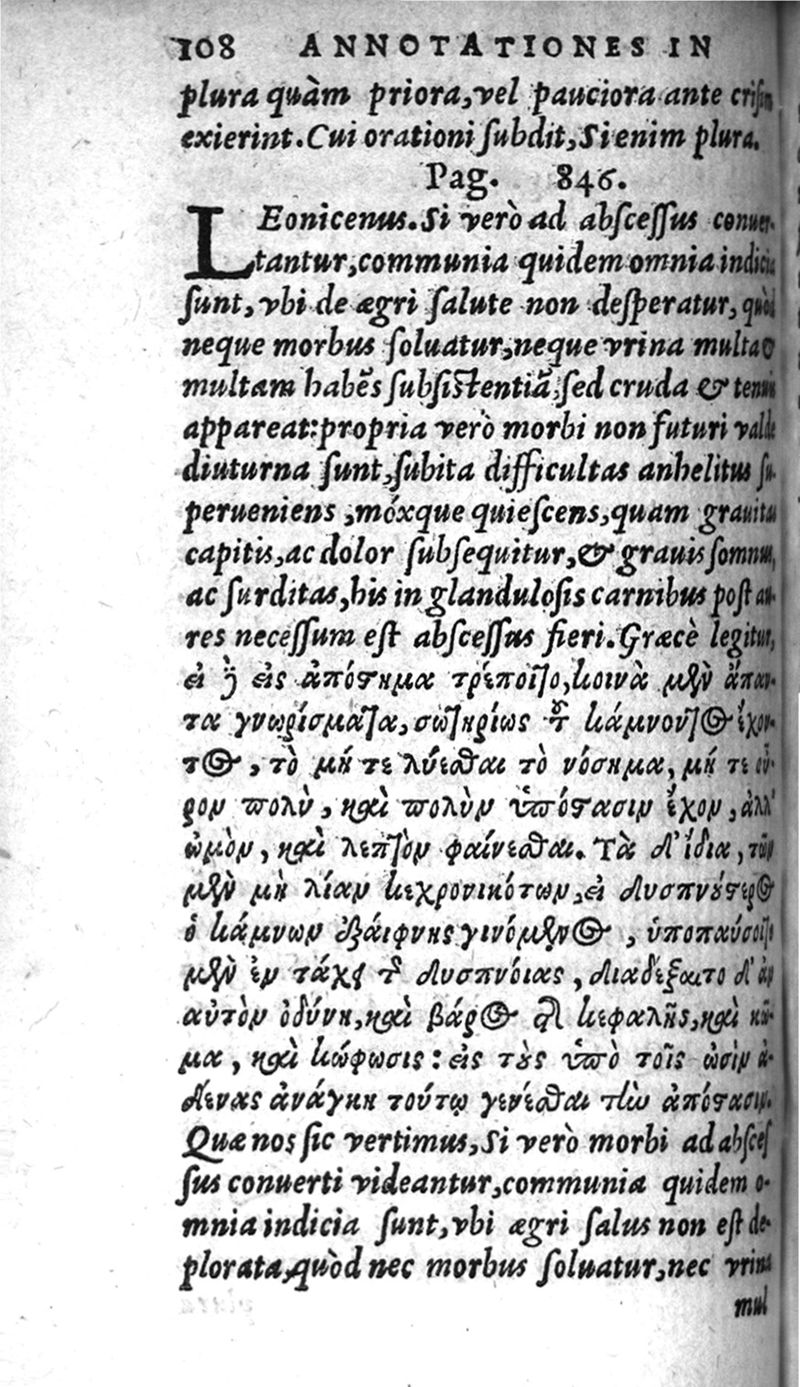 108 ANNOTATIONES IN
plura quàm priora, vel pauciora ante crisin
exierint. Cui orationi subdit, Si enim plura.
Pag. 846.
LEonicenus. Si verò ad abscessus conuer-
tantur, communia quidem omnia indicia
sunt, vbi de ægri salute non desperatur, quòd
neque morbus soluatur, neque vrina multa &
multam habẽs subsistentiã, sed cruda & tenuis
appareat: propria verò morbi non futuri valde
diuturna sunt, subita difficultas anhelitus su-
perueniens, móxque quiescens, quam grauitas
capitis, ac dolor subsequitur, & grauis somnus,
ac surditas, his in glandulosis carnibus post au-
res necessum est abscessus fieri. Græcè legitur,
εἰ δὲ εἰς ἀπόστημα τρέποιτο, κοινὰ μὲν ἅπαν-
τα γνωρίσματα, σωτηρίως τοῦ κάμνοντος ἔχον-
τος, τὸ μή τε λύεσθαι τὸ νόσημα, μή τε οὖ-
ρον πολὺ, καὶ πολὺν ὑπόστασιν ἔχον, ἀλλ'
ὠμὸν, καὶ λεπτὸν φαίνεσθαι. Τὰ δ' ἴδια, τῶν
μὲν μὴ λίαν κεχρονικότων, εἰ δυσπνούστερος
ὁ κάμνων ἐξαίφνης γινόμενος, ὑποπαύσοιτο
μὲν ἐν τάχει τῆς δυσπνοίας, διαδέξαιτο δ' ἂν
αὐτὸν ὀδύνη, καὶ βάρος τῆς κεφαλῆς, καὶ κῶ-
μα, καὶ κώφωσις: εἰς τοὺς ὑπὸ τοῖς ὠσὶν ἀ-
δένας ἀνάγκη τούτῳ γενέσθαι τὴν ἀπόστασιν.
Quæ nos sic vertimus, Si verò morbi ad absces
sus conuerti videantur, communia quidem o-
mnia indicia sunt, vbi ægri salus non est de-
plorata, quòd nec morbus soluatur, nec vrina
mul